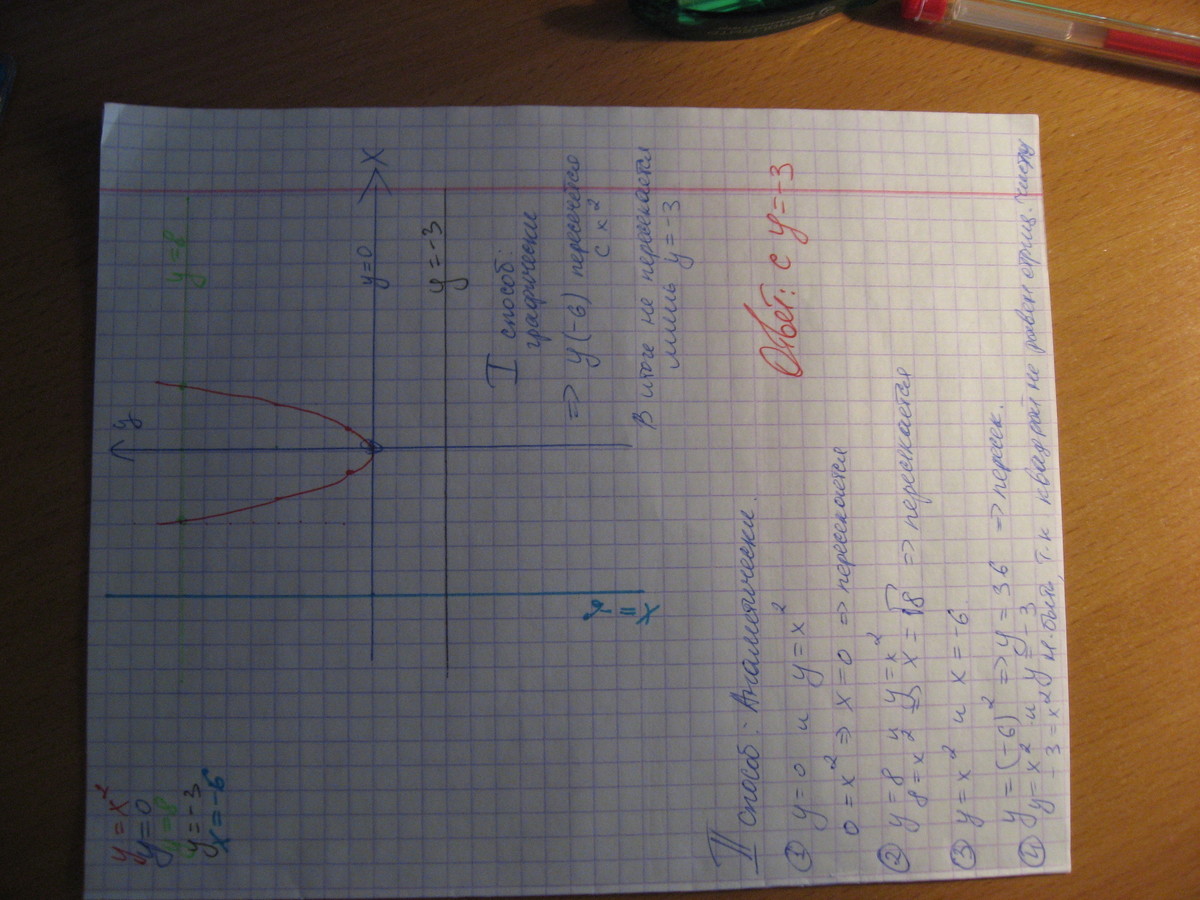 y = x²
y = 0
y = 8
y = -3
x = -6
y
y = 8
y=0
X
y = -3
I способ:
графически
=> y(-6) пересечётся
с x²
В итоге не пересекается
лишь y = -3
Ответ: с y = -3
II способ: Аналитически.
① y = 0 и y = x²
0 = x² => x = 0 => пересекается
② y = 8 и y = x²
8 = x² => x = √8 => пересекается
③ y = x² и x = -6.
y = (-6)² => y = 36 => пересек.
④ y = x² и y = -3
-3 = x² м. быть, т.к квадрат не равен отриц. числу